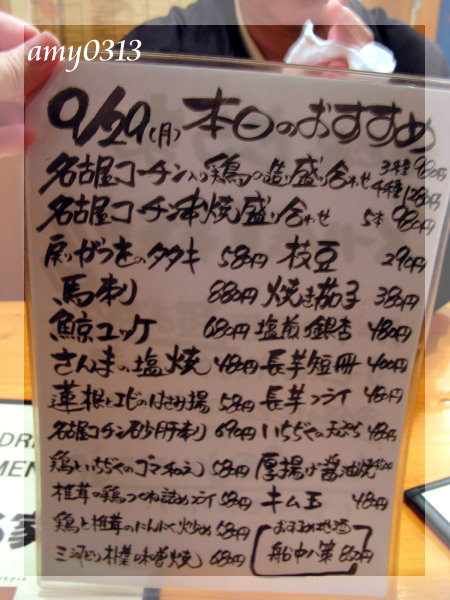 amy0313
9/29(月) 本日のおすすめ
名古屋コーチン入り鶏の造り盛り合わせ 3種 980円
4種 1280円
名古屋コーチン串焼盛り合わせ 5本 980円
戻りがつをのタタキ 580円 枝豆 290円
馬刺 880円 焼き茄子 380円
鯨ユッケ 680円 塩煎り銀杏 480円
さんまの塩焼 480円 長芋短冊 400円
蓮根とエビのはさみ揚 580円 長芋フライ 480円
名古屋コーチン砂肝刺 690円 いちぢくの天ぷら 480円
鶏といちぢくのゴマ和え 580円 厚揚げ醤油焼
椎茸の鶏つくね詰めフライ 580円 キム玉 480円
鶏と椎茸のにんにく炒め 580円 おすすめ地酒
三河どり朴葉味噌焼 680円 船中八策 850円
DRI
MEN